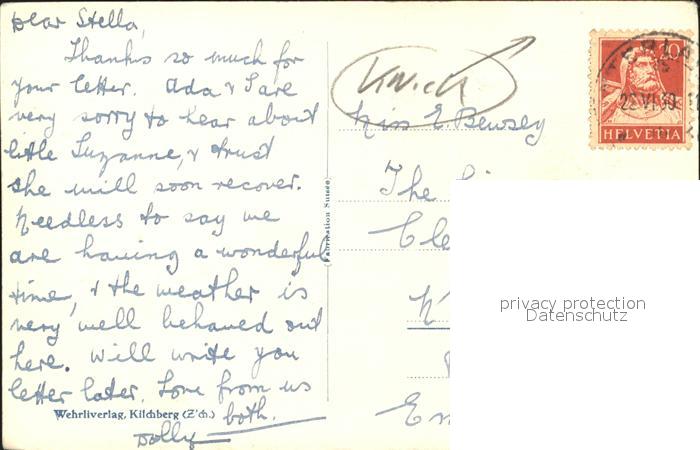 Dear Stella,
Thanks so much for
your letter. Ada & I are
very sorry to hear about
little Suzanne, & trust
she will soon recover.
Needless to say we
are having a wonderful
time, & the weather is
very well behaved out
here. Will write you
letter later. Love from us
both.
Dolly
Wehrliverlag, Kilchberg (Z'ch.)
(Fabrication Suisse)
Miss E Bewsey
The
Cle
En
10
HELVETIA
privacy protection
Datenschutz